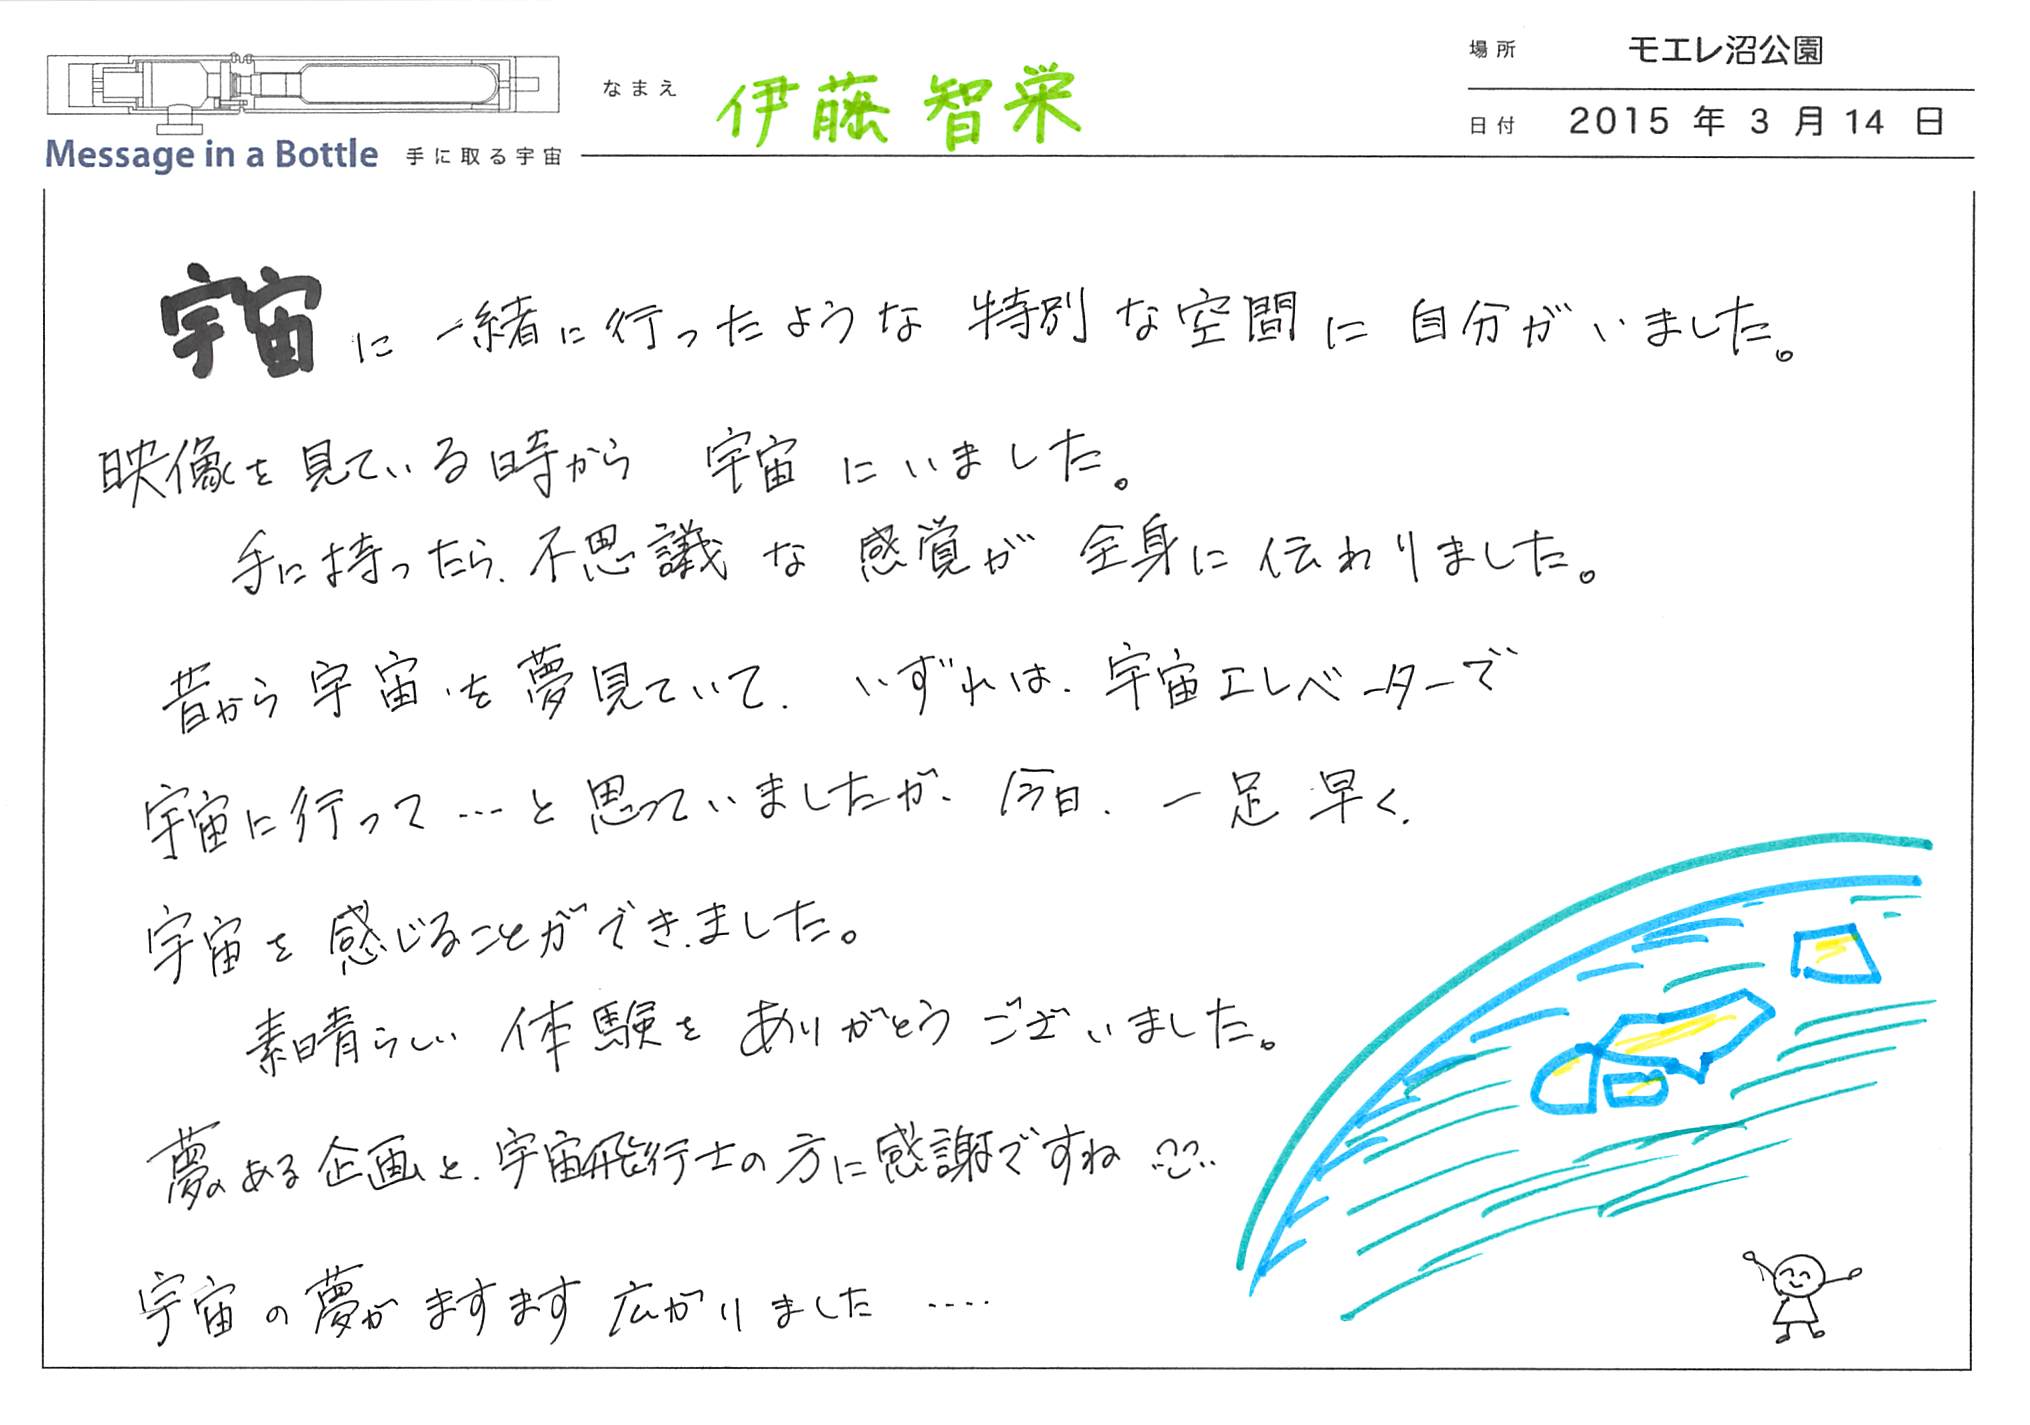 場所 モエレ沼公園
なまえ 伊藤 智栄
日付 2015 年 3 月 14 日
Message in a Bottle 手に取る宇宙
宇宙に一緒に行ったような特別な空間に自分がいました。
映像を見ている時から 宇宙にいました。
手に持ったら、不思議な感覚が全身に伝わりました。
昔から宇宙を夢見ていて、いずれは、宇宙エレベーターで
宇宙に行って…と思っていましたが、今日、一足早く、
宇宙を感じることができました。
素晴らしい体験をありがとうございました。
夢のある企画と、宇宙飛行士の方に感謝ですね
宇宙の夢がますます広がりました ‥‥